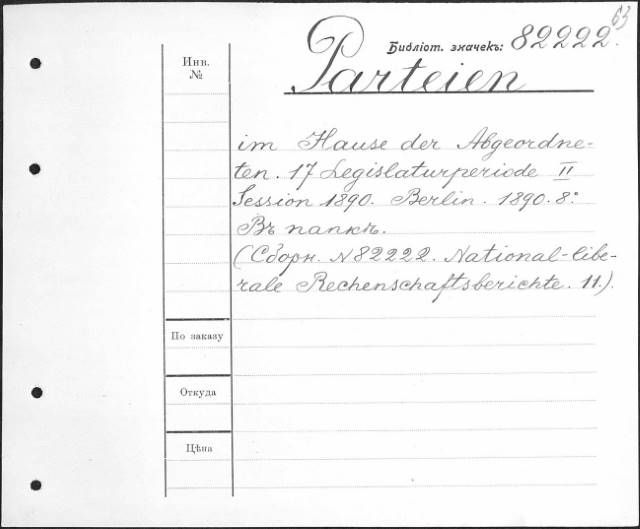 63
Библіот. значекъ: 82222.
Инв.
№
Parteien
im Hause der Abgeordne-
ten. 17 Legislaturperiode II
Session 1890. Berlin. 1890. 8º.
Въ папкѣ.
(Сборн. № 82222. National-libe-
rale Rechenschaftsberichte. 11.).
По заказу
Откуда
Цѣна